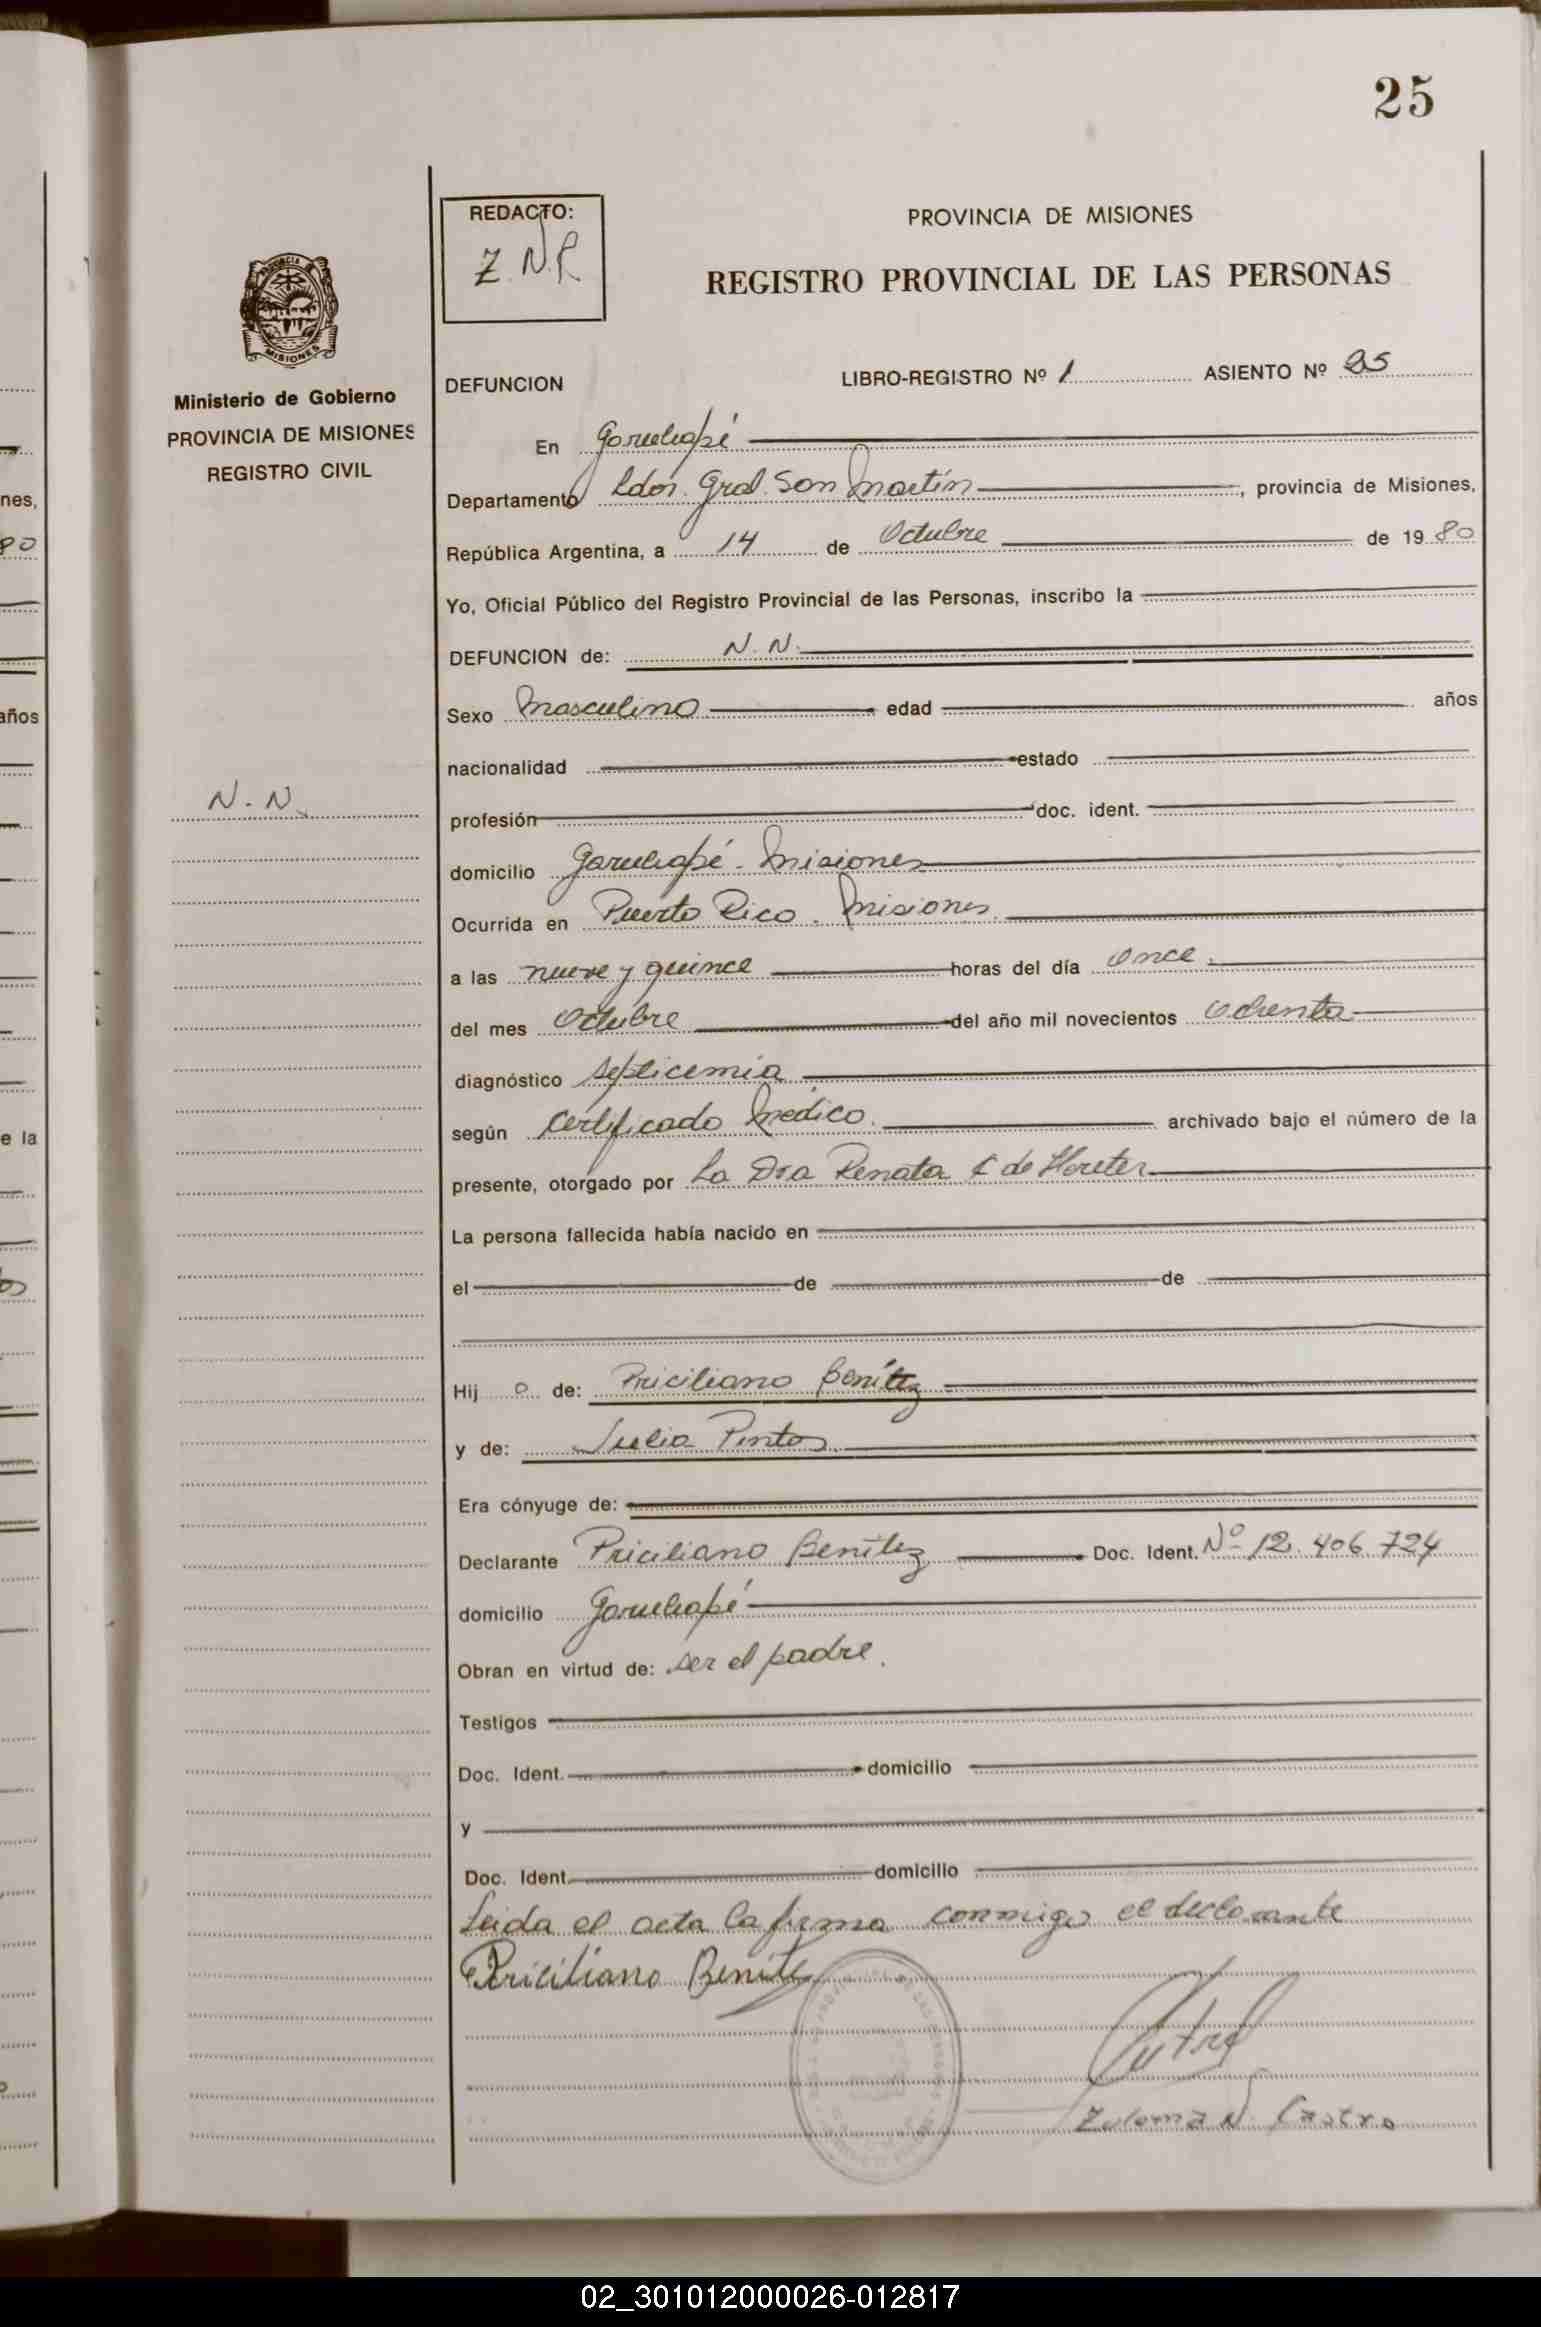 25
REDACTO:
Z. N. R
PROVINCIA DE MISIONES
REGISTRO PROVINCIAL DE LAS PERSONAS
MISIONES
Ministerio de Gobierno
PROVINCIA DE MISIONES
REGISTRO CIVIL
DEFUNCION LIBRO-REGISTRO Nº 1 ASIENTO Nº 25
En Garuhapé
Departamento Ldor. Gral. San Martín, provincia de Misiones,
República Argentina, a 14 de Octubre de 19 80
Yo, Oficial Público del Registro Provincial de las Personas, inscribo la
DEFUNCION de: N. N.
Sexo Masculino edad años
nacionalidad estado
N. N.
profesión doc. ident.
domicilio Garuhapé - Misiones
Ocurrida en Puerto Rico. Misiones
a las nueve y quince horas del día once.
del mes Octubre del año mil novecientos ochenta
diagnóstico septicemia
según Certificado Médico. archivado bajo el número de la
presente, otorgado por La Dra Renata de
La persona fallecida había nacido en
el de de
Hij o de: Priciliano Benítez
y de: Julia Pintos
Era cónyuge de:
Declarante Priciliano Benítez Doc. Ident. Nº 12.406.724
domicilio Garuhapé
Obran en virtud de: ser el padre.
Testigos
Doc. Ident. domicilio
y
Doc. Ident. domicilio
Leida el acta la firma conmigo el declarante
Priciliano Benitez
Zulema N. Castro
02_301012000026-012817
nes,
80
años
e la